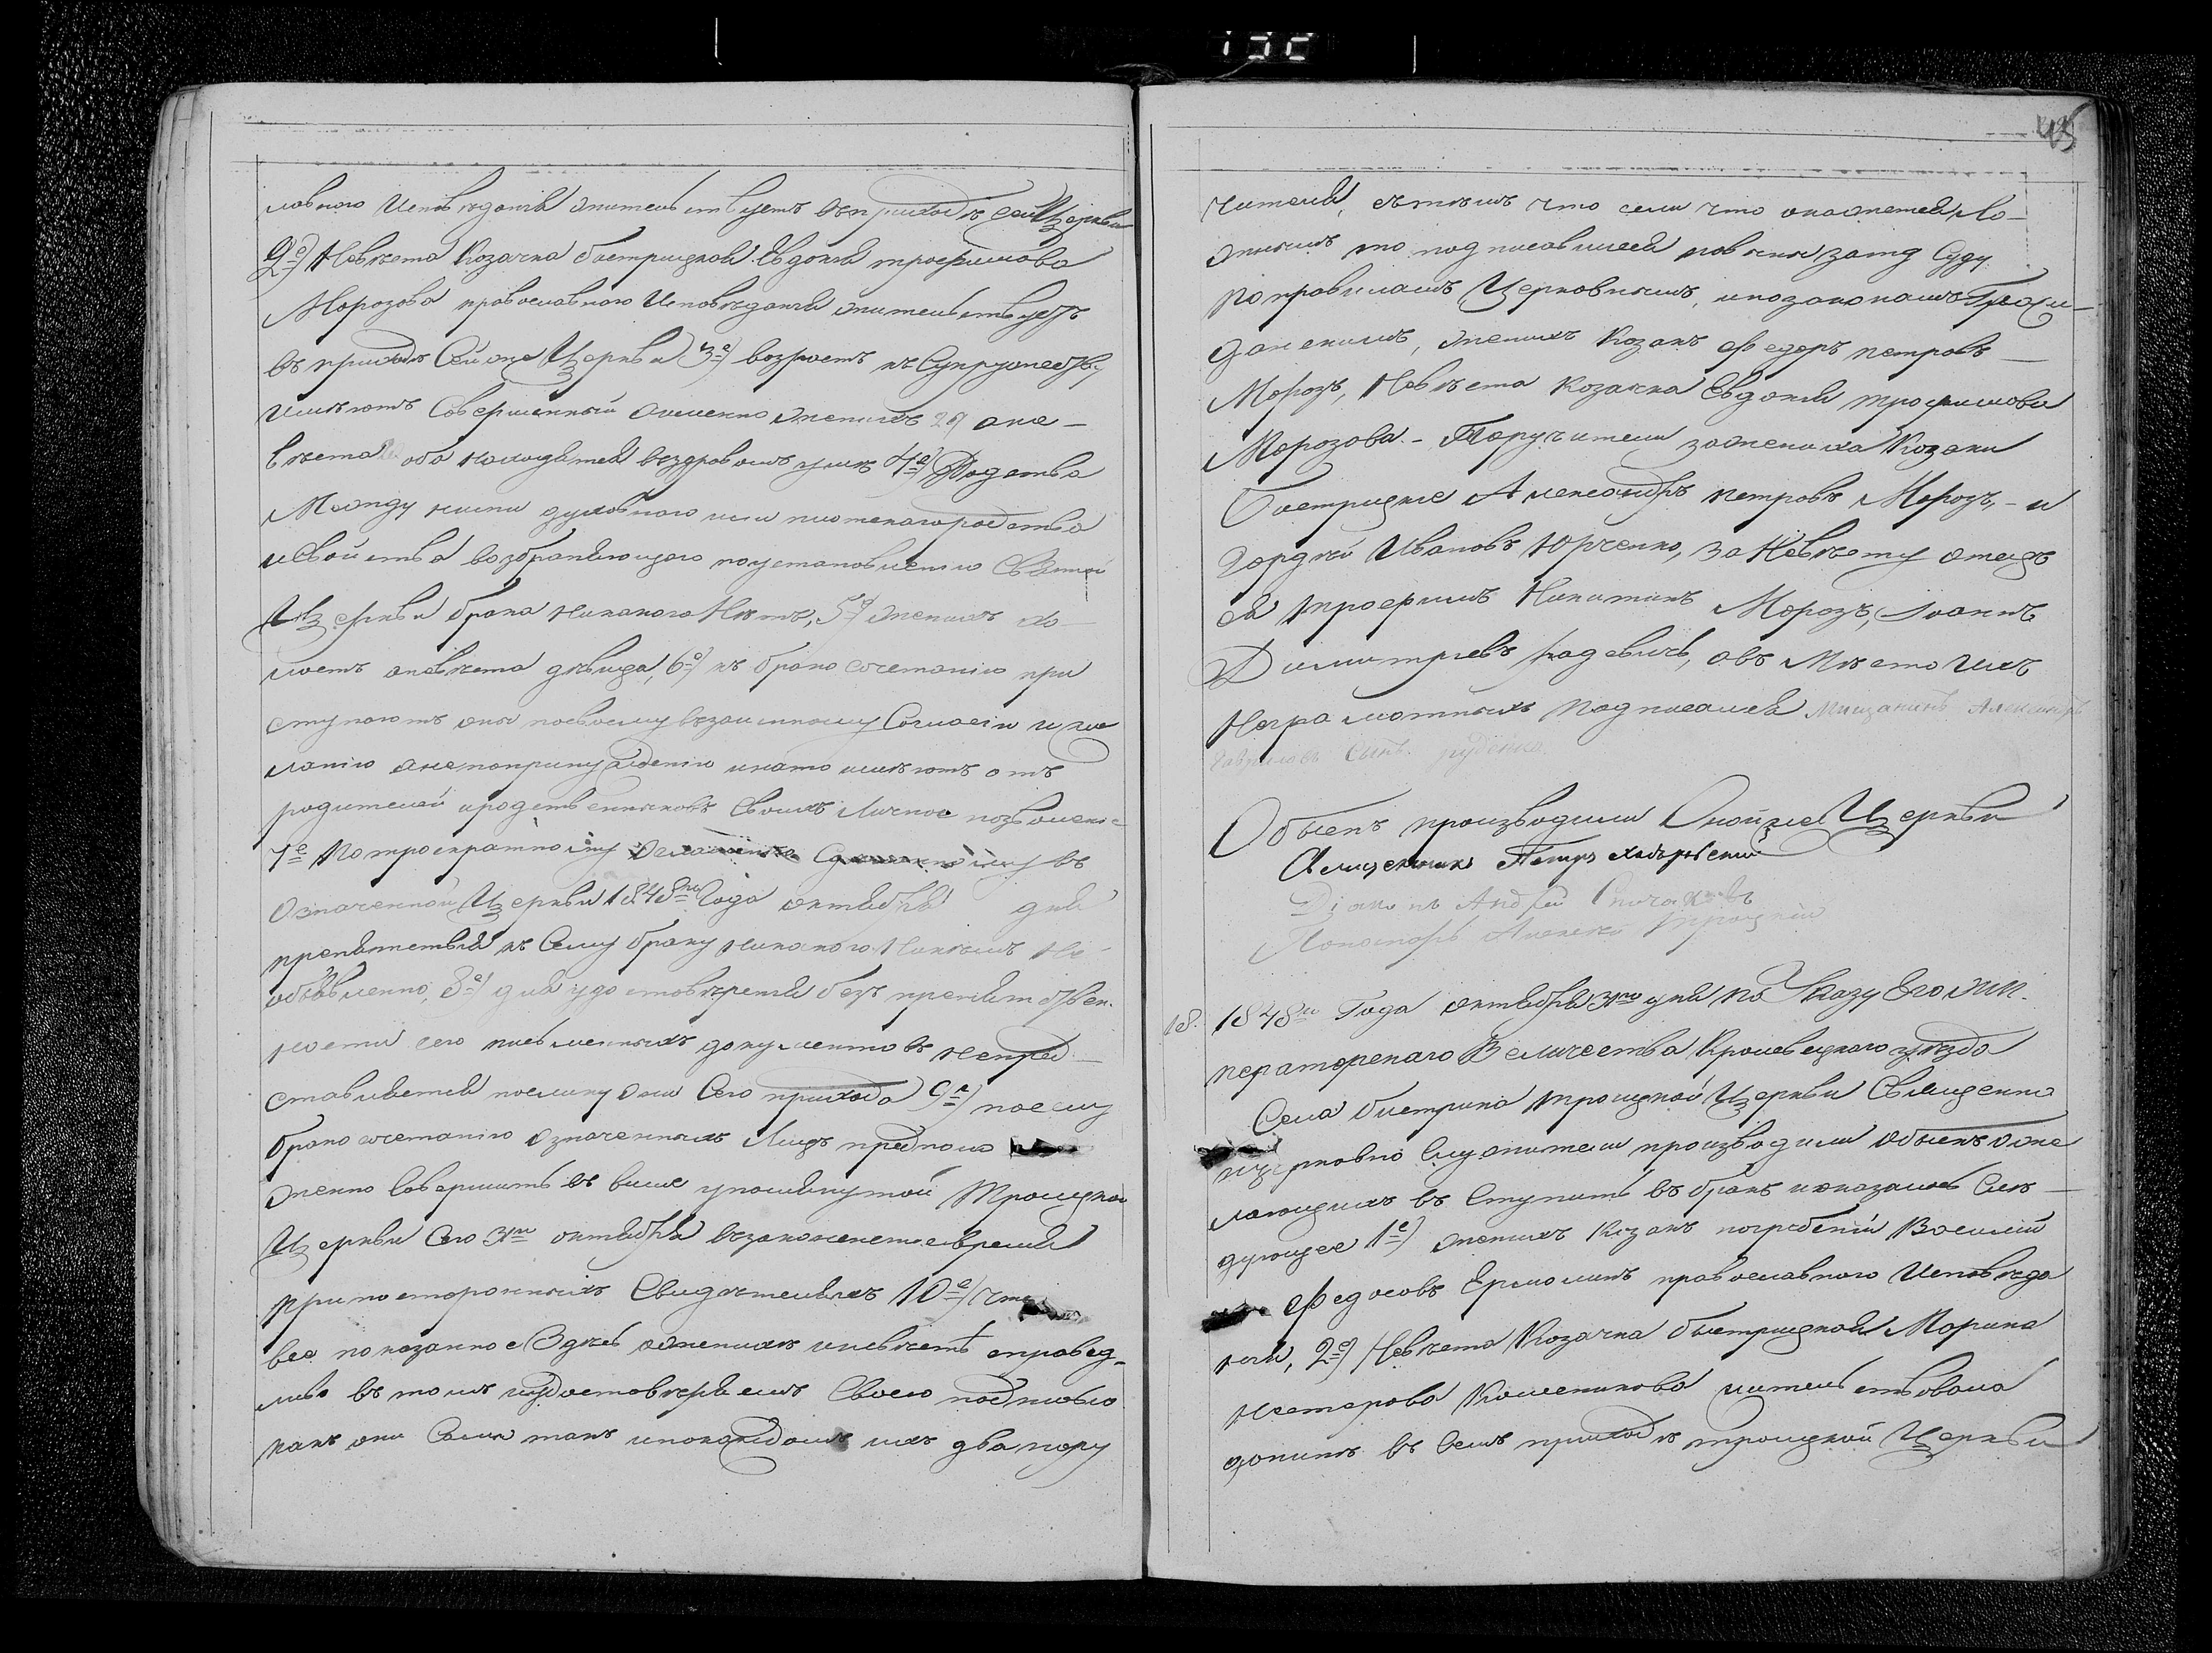 славного Исповеданія жительствуетъ въ приходѣ сей Церкви
2е) Невѣста Козачка быстрицкая Евдокія трофимова
Морозова православного Исповѣданія жительствуетъ
въ приходѣ Сей же Церкви 3е) возрастъ къ Супружеству
имѣютъ Совершенный а именно женихъ 29 ане
вѣста оба находятся въ здравомъ умѣ 4е) Родства
Между ними духовного или плотскаго родства
и Свойства возбраняющаго по установленію Святой
Церкви брака никакого Нѣтъ, 5е) женихъ хо
лостъ а невѣста дѣвица, 6е) къ брако сочетанію при
ступаютъ они по своему взаимному Согласію и же
ланію а не по принужденію и на то имѣютъ отъ
родителей и родственниковъ Своихъ Личное позволеніе
7е По троекратному въ
Означенной Церкви 1848го Года октября дня
препятствія къ Сему браку никакого Никѣмъ Не
объявленно, 8е) для удостовѣренія безпрепятствен.
ности сего письменныхъ документовъ непред
ставляется поелику они Сего прихода 9е) посему
брако сочетанію Означенныхъ Лицъ предполо
женно Совершить въ выше упомянутой Троицкой
Церкви Сего 31го октября въ законное время
при посторонныхъ Свидѣтеляхъ 10е) что
все показанное Здѣсь о женихѣ и невѣстѣ справед
ливо въ томъ удостовѣряемъ Своею подписью
какъ они Сами такъ и по каждомъ ихъ два пору
45
чителя, съ тѣмъ что если что окажется Ло
жнымъ то подписавшіеся повинны за то Суду
По правиламъ Церковнымъ, и по законамъ Граж
данскимъ, женихъ Козакъ Федоръ петровъ
Морозъ, Невѣста Козачка Евдокія трофимова
Морозова - Поручители за жениха Козаки
Быстрицкіе Александръ петровъ Морозъ, - и
Гордѣй Ивановъ Юрченко, за Невѣсту отецъ
ея трофимъ Никитинъ Морозъ, Іоаннъ
Димитріевъ радевичъ, а въ Мѣсто ихъ
Неграмотныхъ подписался Мищанинъ Александръ
Гавриловъ Сынъ руденко
Обыскъ производили Оной же Церкви
Священникъ Петръ
Діаконъ Андрей
Пономарь Алексѣй Троицкій
18. 1848го Года октября 31го дня По Указу Его Им.
ператорскаго Величества Кролевецкаго уѣзда
Села быстрика троицкой Церкви Священно
и церковно Служители производили Обыскъ о же
лающихъ въ Ступить въ бракъ и оказалось Слѣ
дующее 1е) женихъ Козакъ погребскій Василій
Федосовъ Ермолинъ православного Исповѣда
нія, 2е) Невѣста Козачка быстрицкая Марина
Нестерова жительствовала
донынѣ въ семъ приходѣ троицкой Церкви